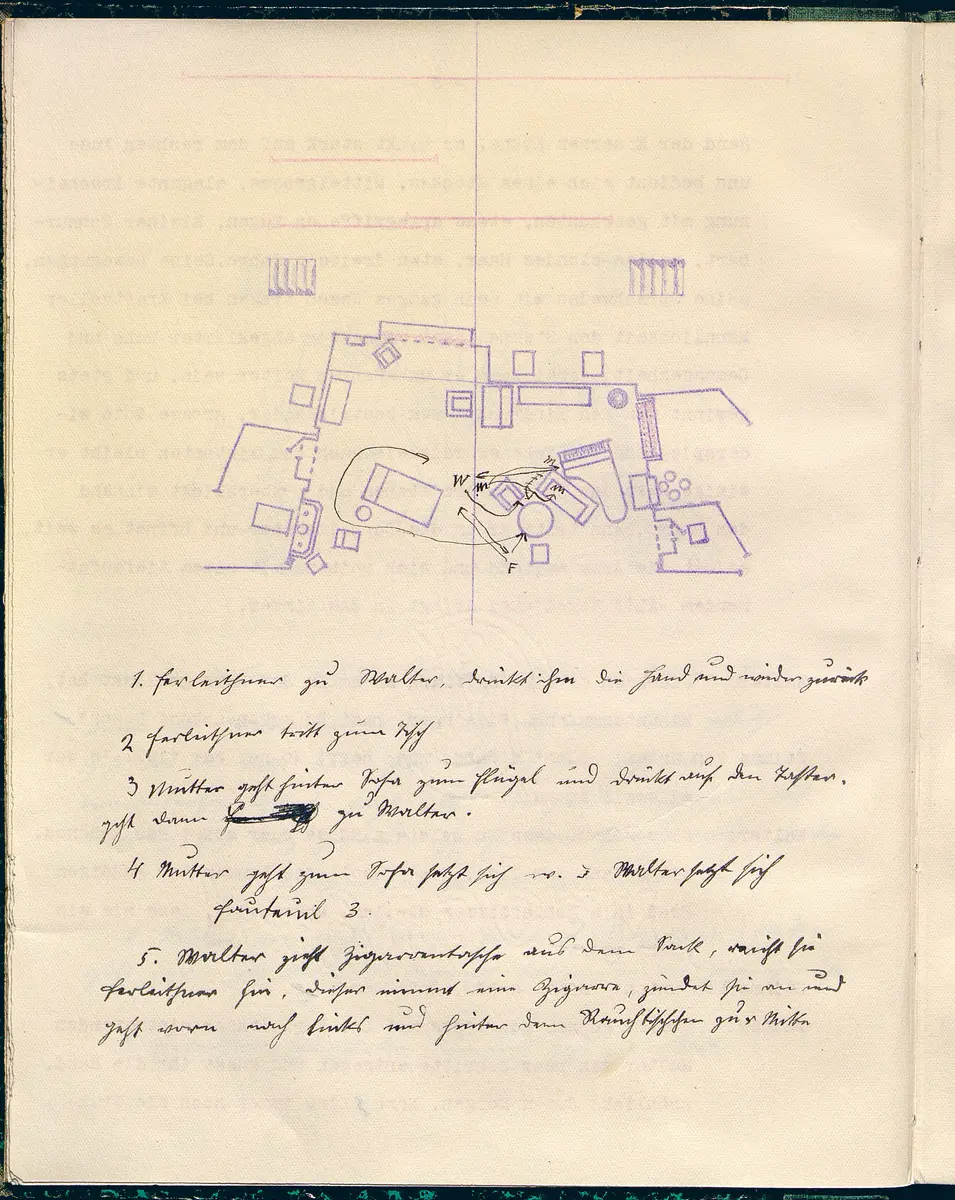 W
m
m
m
F
1. Ferleithner zu Walter, drückt ihm die Hand und wieder zurück
2 Ferleithner tritt zum Tisch
3 Mutter geht hinter Sofa zum Flügel und drückt auf den Taster.
geht dann zu Walter.
4 Mutter geht zum Sofa setzt sich Walter setzt sich
Fauteuil 3.
5. Walter zieht Zigarrentasche aus dem Sack, reicht sie
Ferleithner hin, dieser nimmt eine Zigarre, zündet sie an und
geht vorn nach links und hinter dem Rauchtischchen zur Mitte